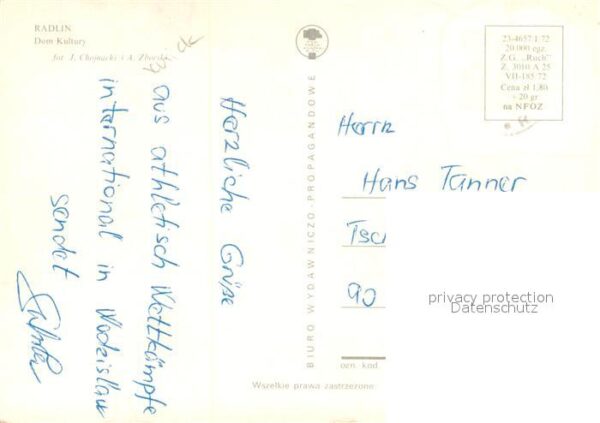 RADLIN
Dom Kultury
fot J. Chojnacki i A. Zborski
Herzliche Grüße
aus athletisch Wettkämpfe
international in Wodzislaw
sendet
BIURO WYDAWNICZO-PROPAGANDOWE
23-4657 I 72
20.000 egz.
Z.G. „Ruch"
Z. 3010 A 25
VII-185/72
Cena zł 1,80
+ 20 gr
na NFOZ
Herrn
Hans Tanner
Tsc
90
ozn. kod.
Wszelkie prawa zastrzeżone
privacy protection
Datenschutz